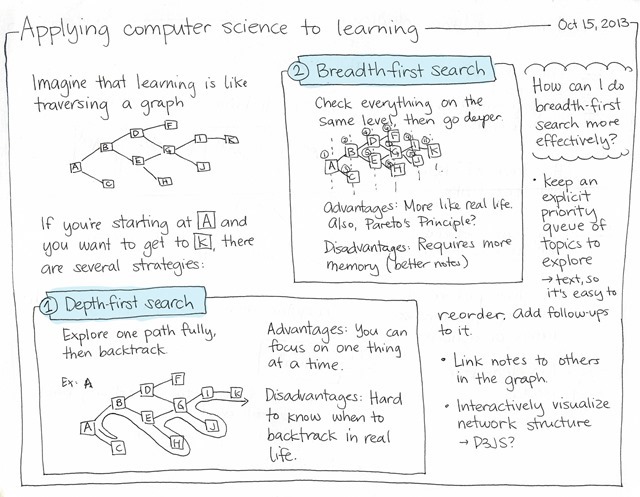 Applying computer science to learning
Oct 15, 2013
Imagine that learning is like
traversing a graph
A
B
C
D
E
F
G
H
I
J
K
If you're starting at A and
you want to get to K, there
are several strategies:
1 Depth-first search
Explore one path fully,
then backtrack.
Ex: A
A
B
C
D
E
F
G
H
I
J
K
Advantages: You can
focus on one thing
at a time.
Disadvantages: Hard
to know when to
backtrack in real
life.
2 Breadth-first search
Check everything on the
same level, then go deeper.
A
B
C
D
E
F
G
H
I
J
K
Advantages: More like real life.
Also, Pareto's Principle?
Disadvantages: Requires more
memory (better notes)
How can I do
breadth-first
search more
effectively?
• Keep an
explicit
priority
queue of
topics to
explore
→ text, so
it's easy to
reorder, add follow-ups
to it.
• Link notes to others
in the graph.
• Interactively visualize
network structure
→ D3JS?